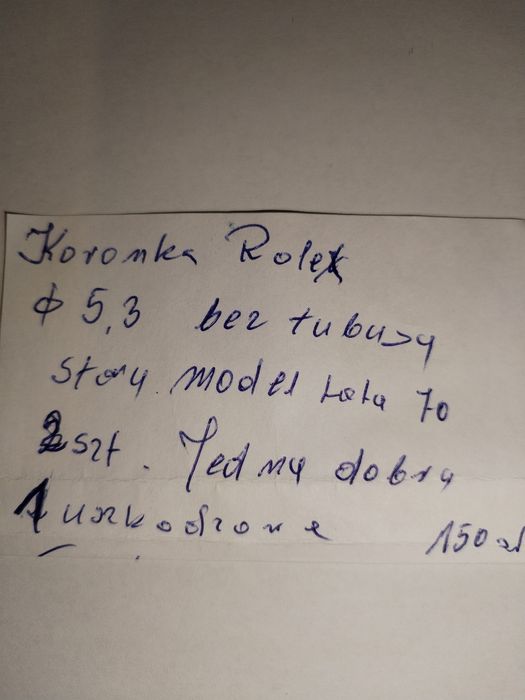 Koronka Rolex
ϕ 5,3 bez tubusa
stary model lata 70
2szt. Jedna dobra
1 uszkodzona 150 zł